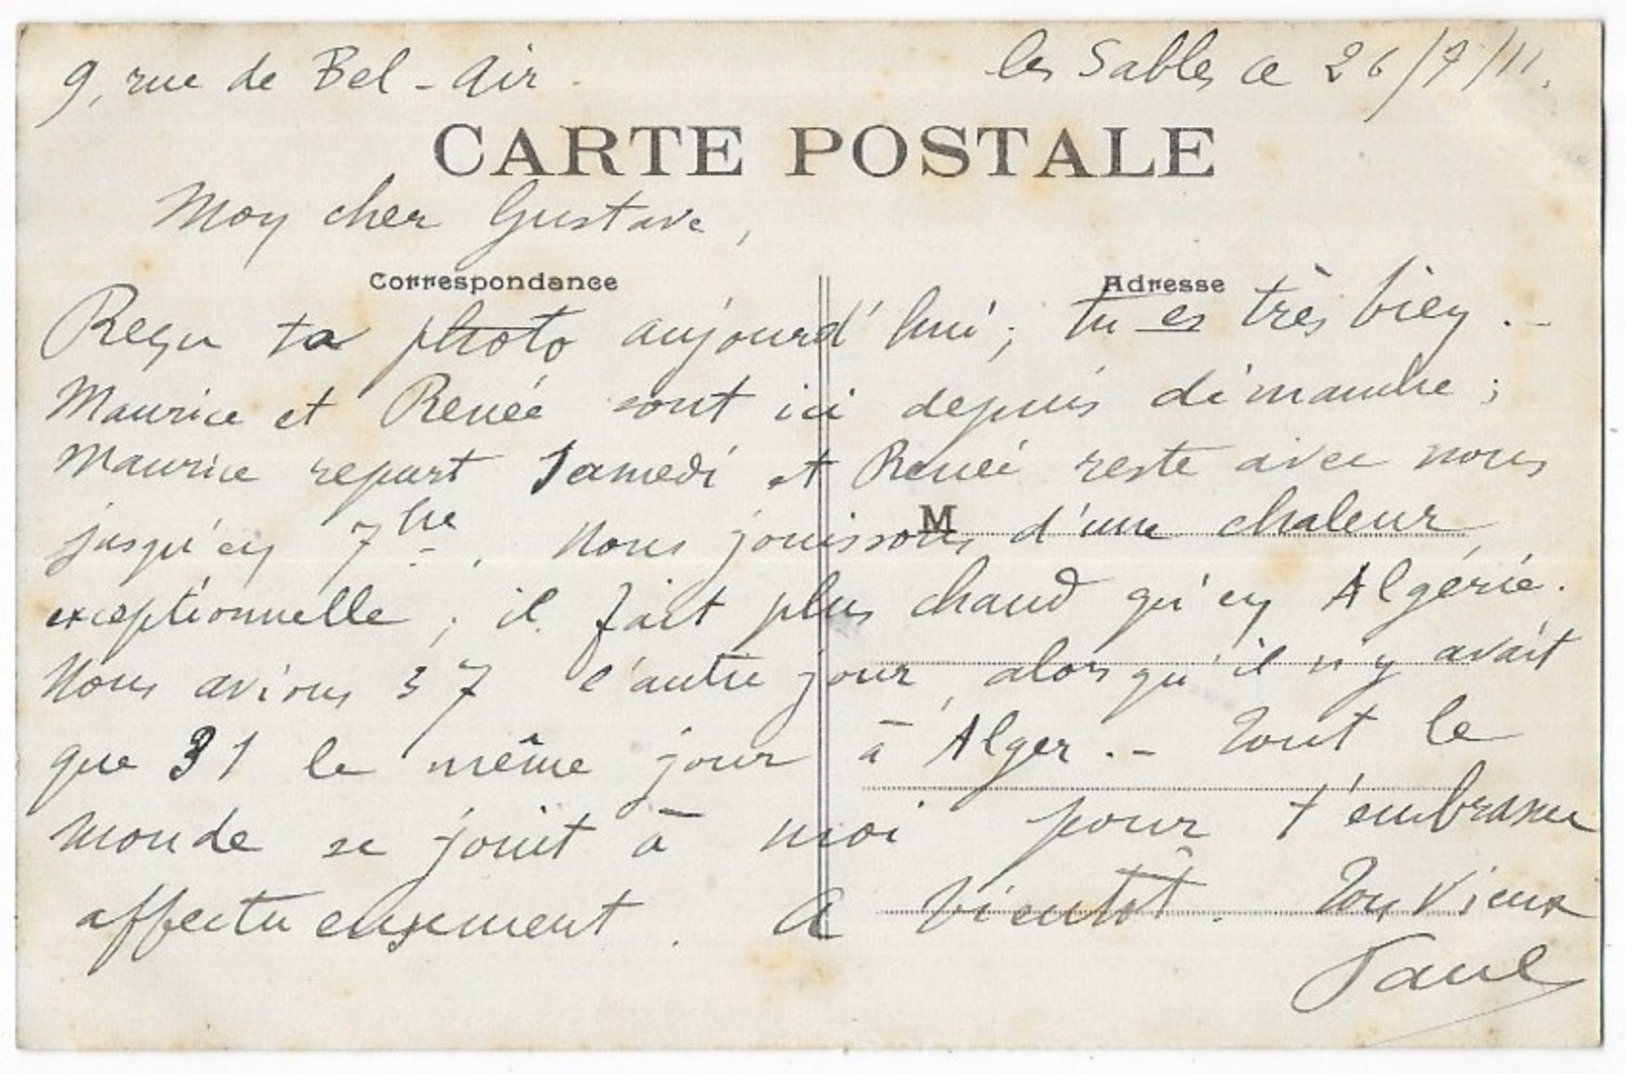 9, rue de Bel-Air.
les Sables ce 26/7/11.
CARTE POSTALE
Mon cher Gustave,
Correspondance
Adresse
Reçu ta photo aujourd'hui ; tu es très bien.-
Maurice et Renée sont ici depuis dimanche ;
Maurice repart Samedi et Renée reste avec nous
jusqu'en 7bre. Nous jouissons d'une chaleur
M
exceptionnelle ; il fait plus chaud qu'en Algérie.
Nous avions 37 l'autre jour, alors qu'il n'y avait
que 31 le même jour à Alger.- Tout le
monde se joint à moi pour t'embrasser
affectueusement. A bientôt. Ton vieux
Paul